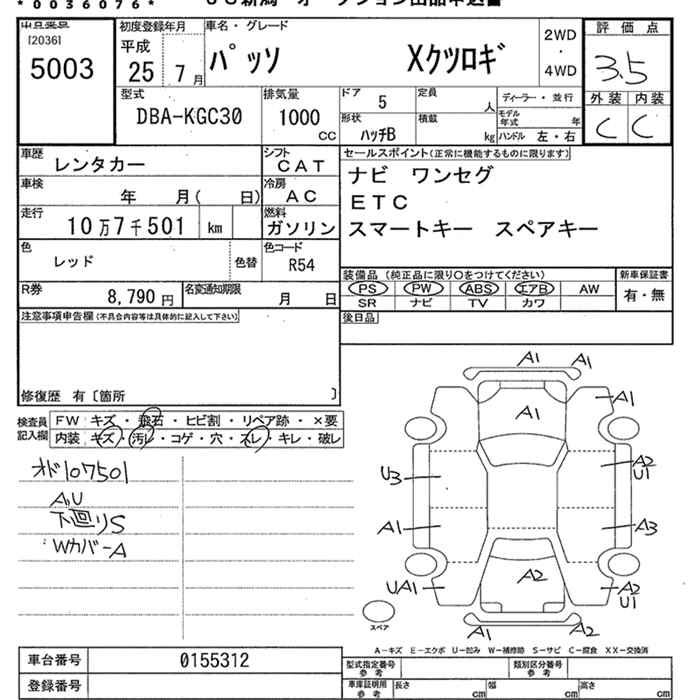 *0036076*
[2036]
5003
初度登録年月
平成
25 7 月
車名・グレード
パッソ Xクツロギ
2WD
・
4WD
評価点
3.5
外装 内装
C C
型式
DBA-KGC30
排気量
1000
CC
ドア 5
定員 人
形状 ハッチB
積載 kg
ディーラー・並行
モデル年式 年
ハンドル 左・右
車歴
レンタカー
シフト
CAT
車検
年 月( 日)
冷房
AC
走行
10万7千501 km
燃料
ガソリン
色
レッド
色替
色コード
R54
R券
8,790 円
名変通知期限
月 日
セールスポイント(正常に機能するものに限ります)
ナビ ワンセグ
ETC
スマートキー スペアキー
装備品(純正品に限り○をつけてください)
PS PW ABS エアB AW
SR ナビ TV カワ
新車保証書
有・無
後日品
注意事項申告欄(不具合内容等は具体的に記入して下さい)
修復歴 有〔箇所 〕
検査員
記入欄
FW キズ・飛石・ヒビ割・リペア跡・×要
内装 キズ・汚レ・コゲ・穴・スレ・キレ・破レ
オド107501
A,U
下廻りS
Wカバ-A
A1 A1
A1 A1
U3 A2
U1
A1 A3
UA1 A2 A2
U1
A1 A2
スペア
A-キズ E-エクボ U-凹み W-補修跡 S-サビ C-腐食 XX-交換済
車台番号 0155312
登録番号
型式指定番号
参考
類別区分番号
参考
車庫証明用
参考
長さ cm 幅 cm 高さ cm